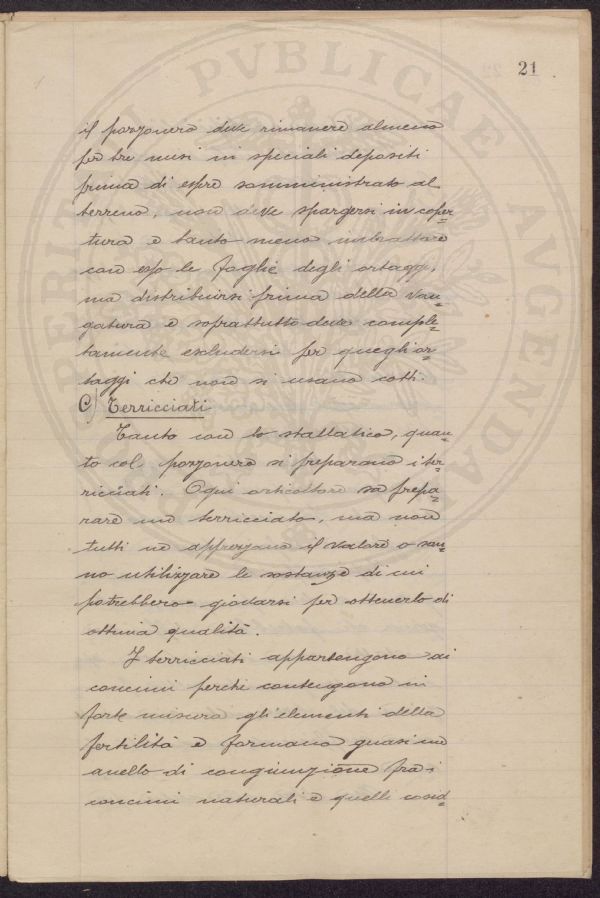 21
il pozzonero deve rimanere almeno
per tre mesi in speciali depositi
prima di essere somministrato al
terreno, non deve spargersi in coper=
tura e tanto meno imbrattare
con esso le foglie degli ortaggi,
ma distribuirsi prima della van=
gatura e soprattutto deve comple=
tamente escludersi per quegli or=
taggi che non si usano cotti.
C) Terricciati
Tanto con lo stallatico, quan=
to col pozzonero si preparano i ter=
ricciati. Ogni orticoltore sa prepa=
rare un terricciato, ma non
tutti ne apprezzano il valore o san=
no utilizzare le sostanze di cui
potrebbero giovarsi per ottenerlo di
ottima qualità.
I terricciati appartengono ai
concimi perchè contengono in
forte misura gli elementi della
fertilità e formano quasi un
anello di congiunzione fra i
concimi naturali e quelli così=
PROSPERITATI PVBLICAE AVGENDAE